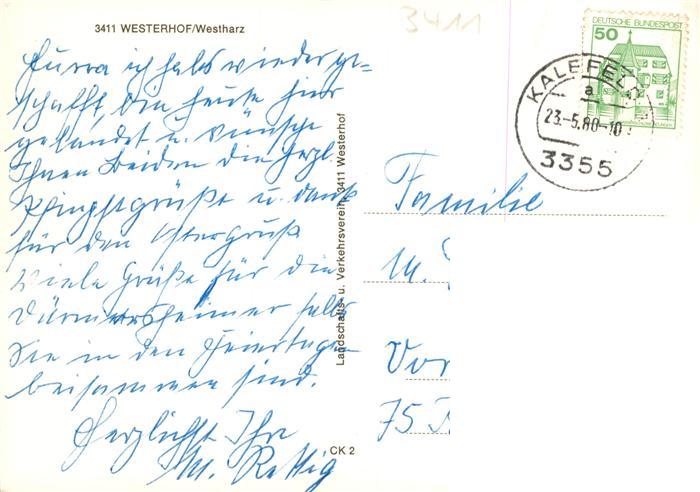 3411 WESTERHOF/Westharz
3411
Hurra ich habs wieder ge-
schafft, bin heute hier
gelandet u. wünsche
Ihnen Beiden die herzl.
Pfingstgrüße u. dank
für den Ostergruß
Viele Grüße für die
Dürmersheimer falls
Sie in den Feiertagen
beisammen sind.
Herzlichst Ihr
M. Rettig
CK 2
Landschafts- u. Verkehrsverein, 3411 Westerhof
DEUTSCHE BUNDESPOST
50
KALEFELD
a
23.-5.80-10
3355
Familie
M.
Vor
75